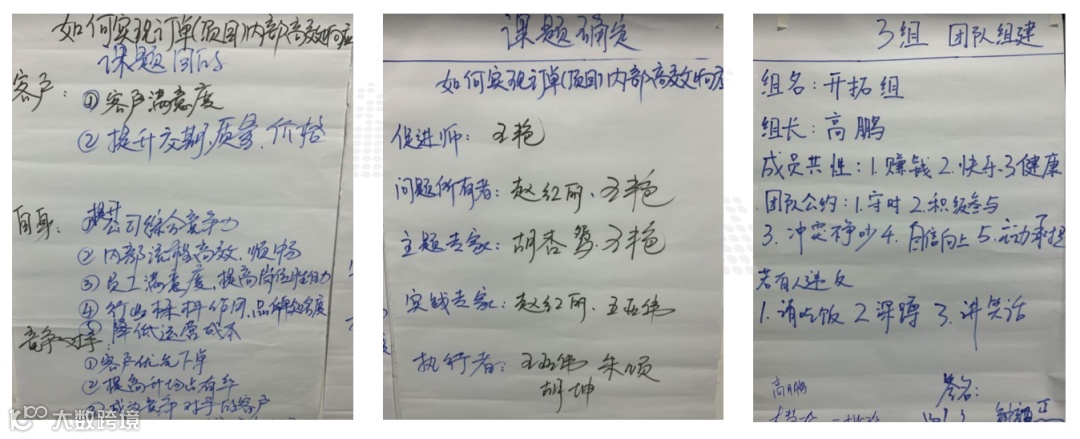 如何实现订单(项目)内部高效响应
课题目的
客户：
① 客户满意度
② 提升交期、质量、价格
自身：
① 提升公司综合竞争力
② 内部流程高效、顺畅
③ 员工满意度、提高岗位胜任力
④ 行业标杆作用、品牌知名度
⑤ 降低运营成本
竞争对手：
① 客户优先下单
② 提高市场占有率
③ 成为竞争对手的客户
课题确定
如何实现订单(项目)内部高效响应
促进师：王艳
问题所有者：赵红丽、王艳
主题专家：胡杏鸳、王艳
实践专家：赵红丽、王亚伟
执行者：王亚伟 朱顺
胡坤
3组 团队组建
组名：开拓组
组长：高鹏
成员共性：1.赚钱 2.快乐 3健康
团队公约：1.守时 2.积极参与
3. 冲突净吵 4. 自信向上 5. 主动承担
若有人违反
1. 请吃饭 2 深蹲 3. 讲笑话
高鹏
签名：
大数跨境